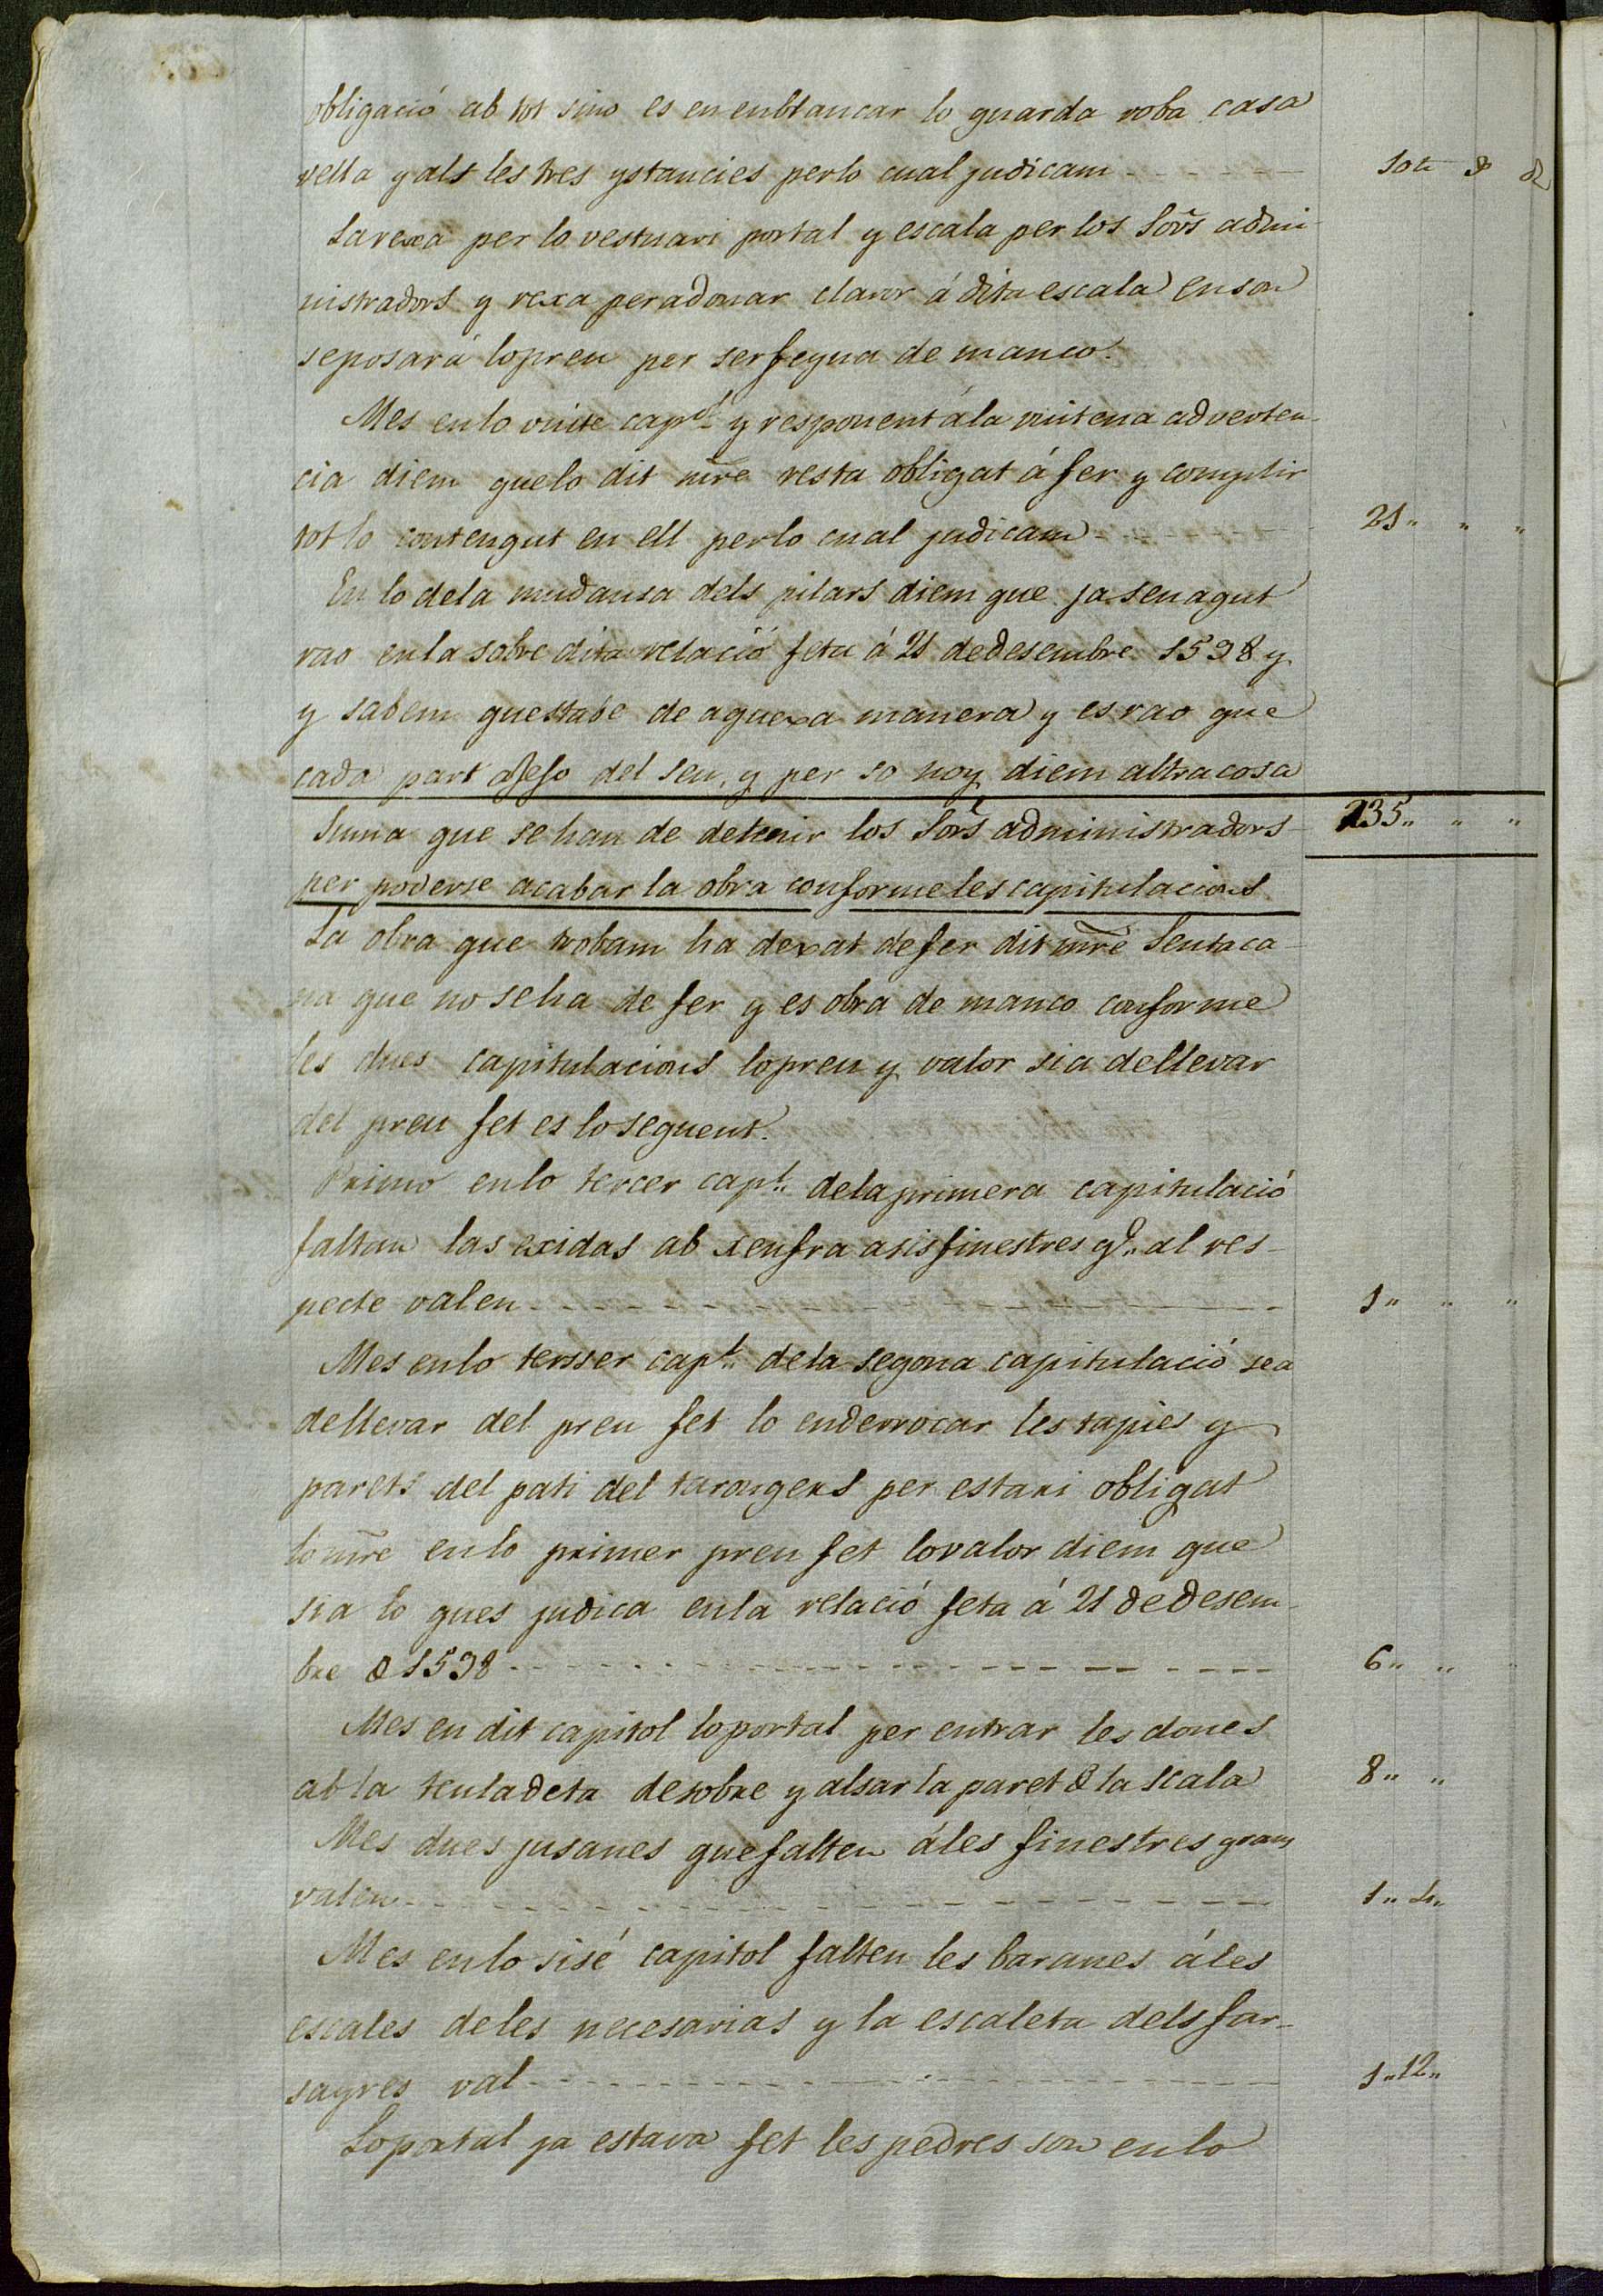 obligació ab tot sino es en enblancar lo guarda roba casa
vella y als les tres ystancies perlo cual judicam - - - - - - 10 ll s d
La rexa per lo vestuari portal y escala per los Sors admi-
nistradors y rexa peradonar claror á dita escala en son
seposará lopreu per ser feyna de manco.
Mes enlo vuite capl. y responent ála vuitena adverten-
cia diem quelo dit mre resta obligat á fer y complir
tot lo contengut en ell perlo cual judicam - - - - - - 21 " " "
En lo dela mudansa dels pilars diem que ja sen agut
rao enla sobre dita relació feta á 21 dedesembre 1598 y
y sabem questabe de aquexa manera y es rao que
cada part del seu, y per so noy diem altra cosa
Suma que se han de detenir los Sors administradors 235 " " "
per poderse acabar la obra conforme les capitulacions
La obra que trobam ha dexat defer dit mre Sentaca-
na que no seha de fer y es obra de manco conforme
les dues capitulacions lopreu y valor sia dellevar
del preu fet es lo seguent.
Primo enlo tercer capl. dela primera capitulació
faltan las exidas ab xenfra asis finestres ql. al res-
pecte valen - - - - - - 1 " " "
Mes enlo tersser capl. dela segona capitulació sea
dellevar del preu fet lo enderrocar les tapies y
parets del pati del tarongers per estari obligat
lo mre enlo primer preu fet lovalor diem que
sia lo ques judica enla relació feta á 21 dedesem-
bre d 1598 - - - - - - 6 " "
Mes en dit capitol loportal per entrar les dones
ab la teuladeta desobre y alsar la paret d la scala 8 " "
Mes dues jusanes quefalten áles finestres grans
valen - - - - - - 1 " 4 "
Mes enlo sisé capitol falten les baranes áles
escales deles necesarias y la escaleta dels far-
sayres val - - - - - - 1 " 12 "
Loportal ja estava fet les pedres son enlo